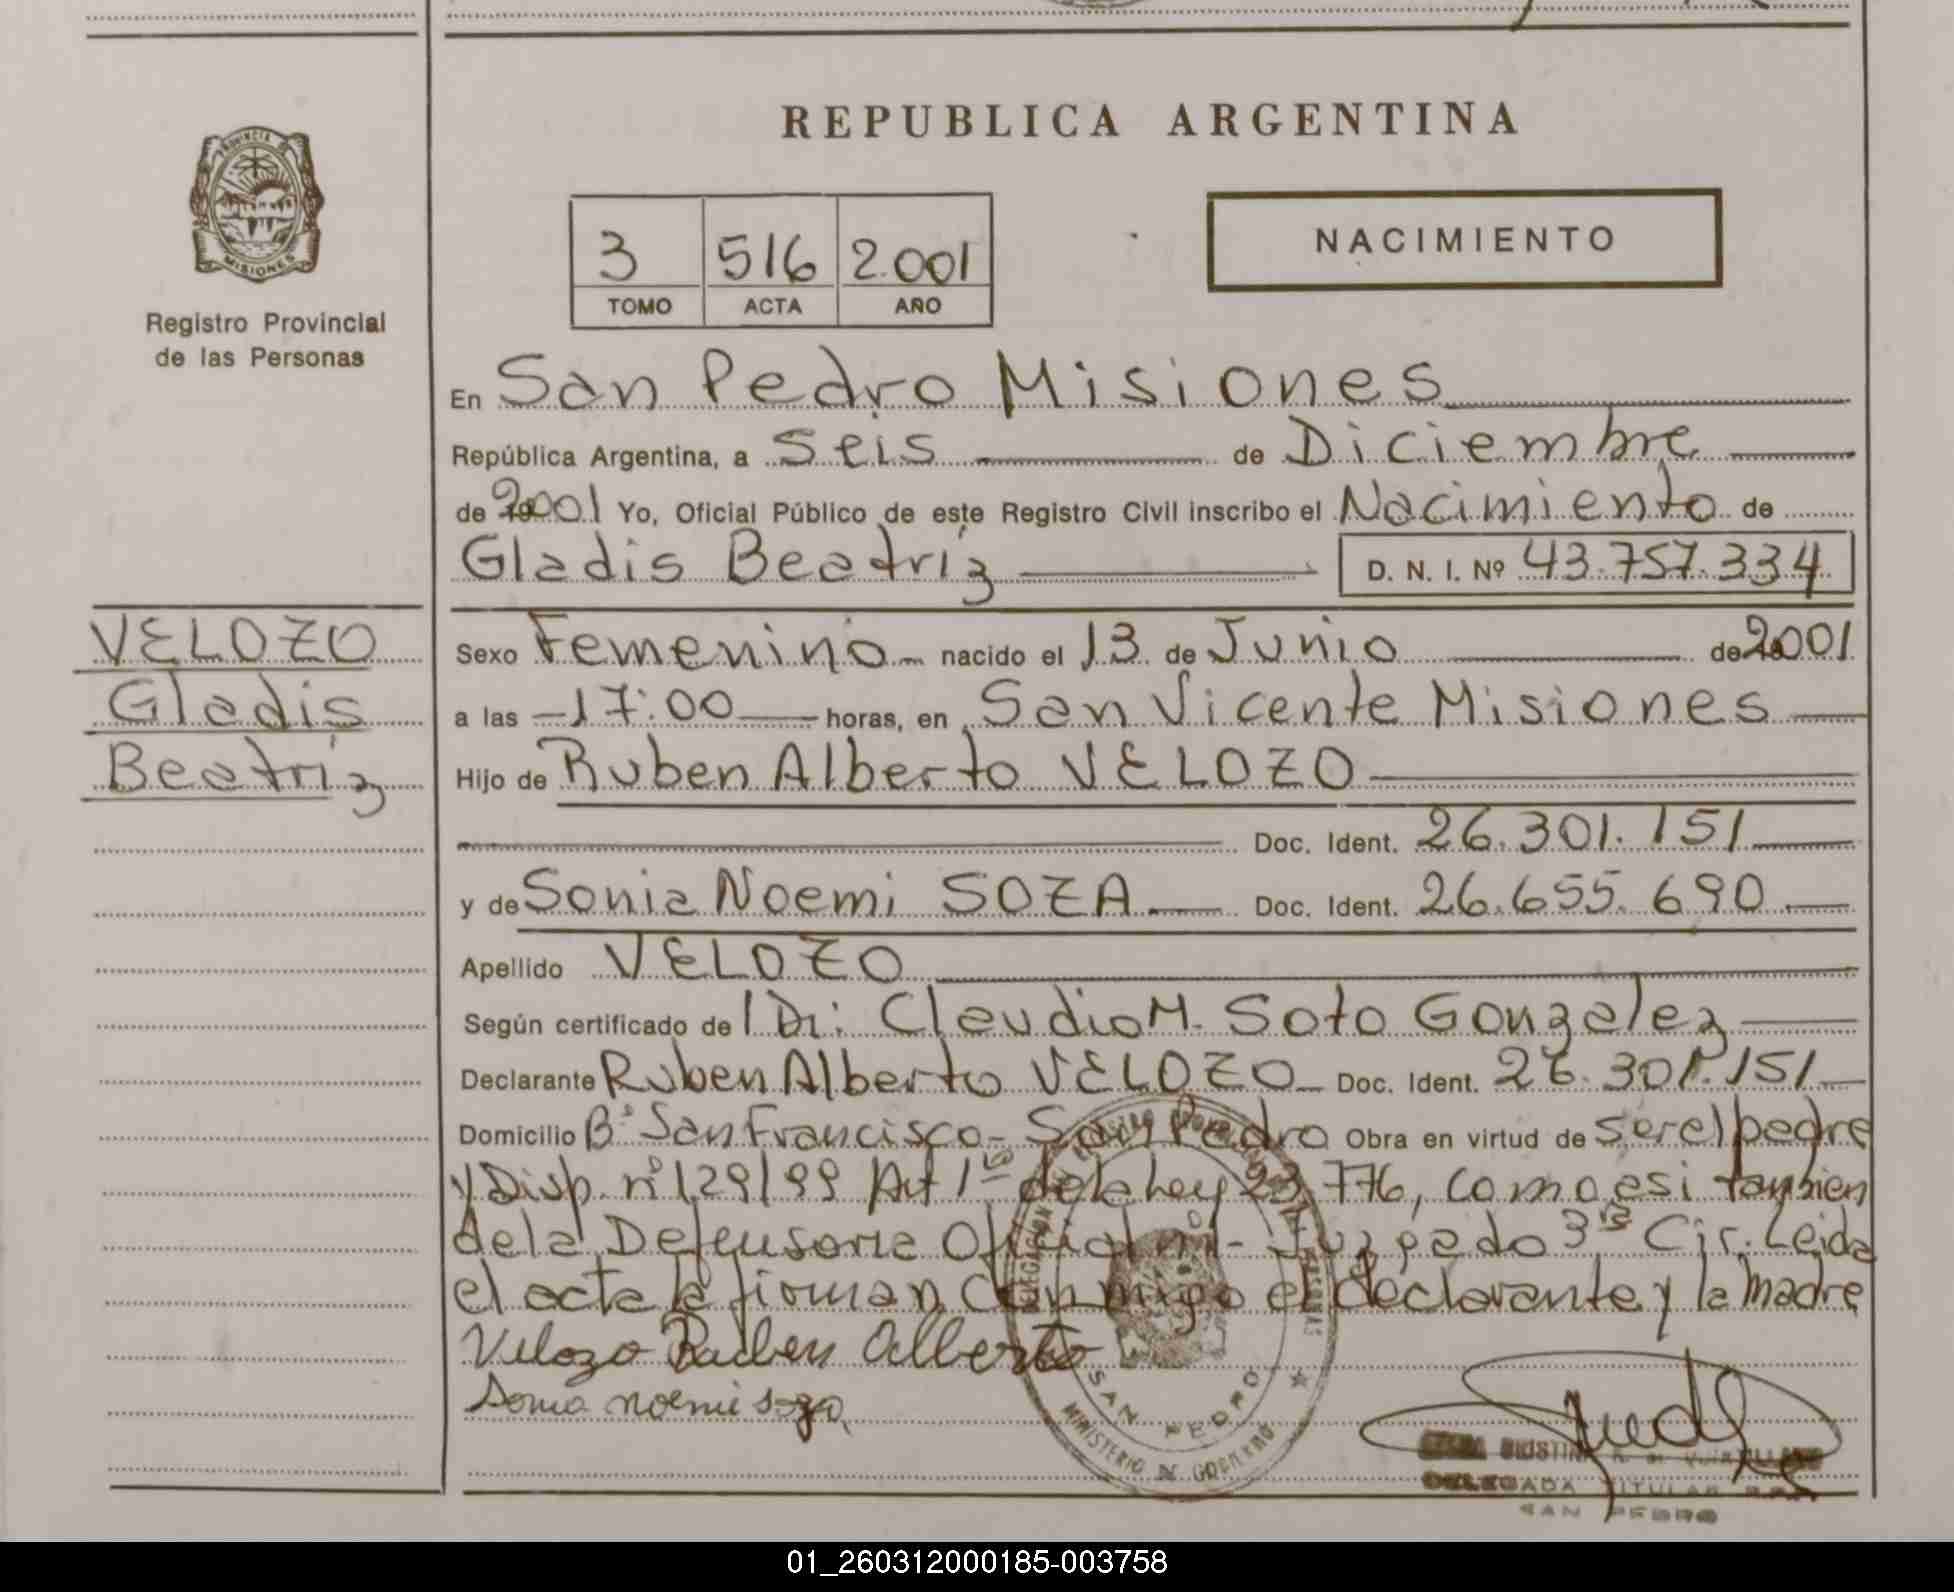 REPUBLICA ARGENTINA
PROVINCIA DE
MISIONES
Registro Provincial
de las Personas
3 516 2.001
TOMO ACTA AÑO
NACIMIENTO
En San Pedro Misiones
República Argentina, a seis de Diciembre
de 2001 Yo, Oficial Público de este Registro Civil inscribo el Nacimiento de
Gladis Beatriz D. N. I. Nº 43.757.334
VELOZO
Gladis
Beatriz
Sexo Femenino nacido el 13 de Junio de 2001
a las 17:00 horas, en San Vicente Misiones
Hijo de Ruben Alberto VELOZO
Doc. Ident. 26.301.151
y de Sonia Noemi SOZA Doc. Ident. 26.655.690
Apellido VELOZO
Según certificado de l Dr: Claudio M. Soto Gonzalez
Declarante Ruben Alberto VELOZO Doc. Ident. 26.301.151
Domicilio Bº San Francisco - San Pedro Obra en virtud de ser el padre
y Disp. nº 129/99 Art 1º de la Ley 23.776, como asi tambien
de la Defensoria Oficial Nº1 - Juzgado 3ra Cir. Leida
el acta la firman conmigo el declarante y la madre
Velozo Ruben Alberto
Sonia noemi soza
SAN PEDRO
MINISTERIO DE GOBIERNO
DELEGADA TITULAR
SAN PEDRO
01_260312000185-003758